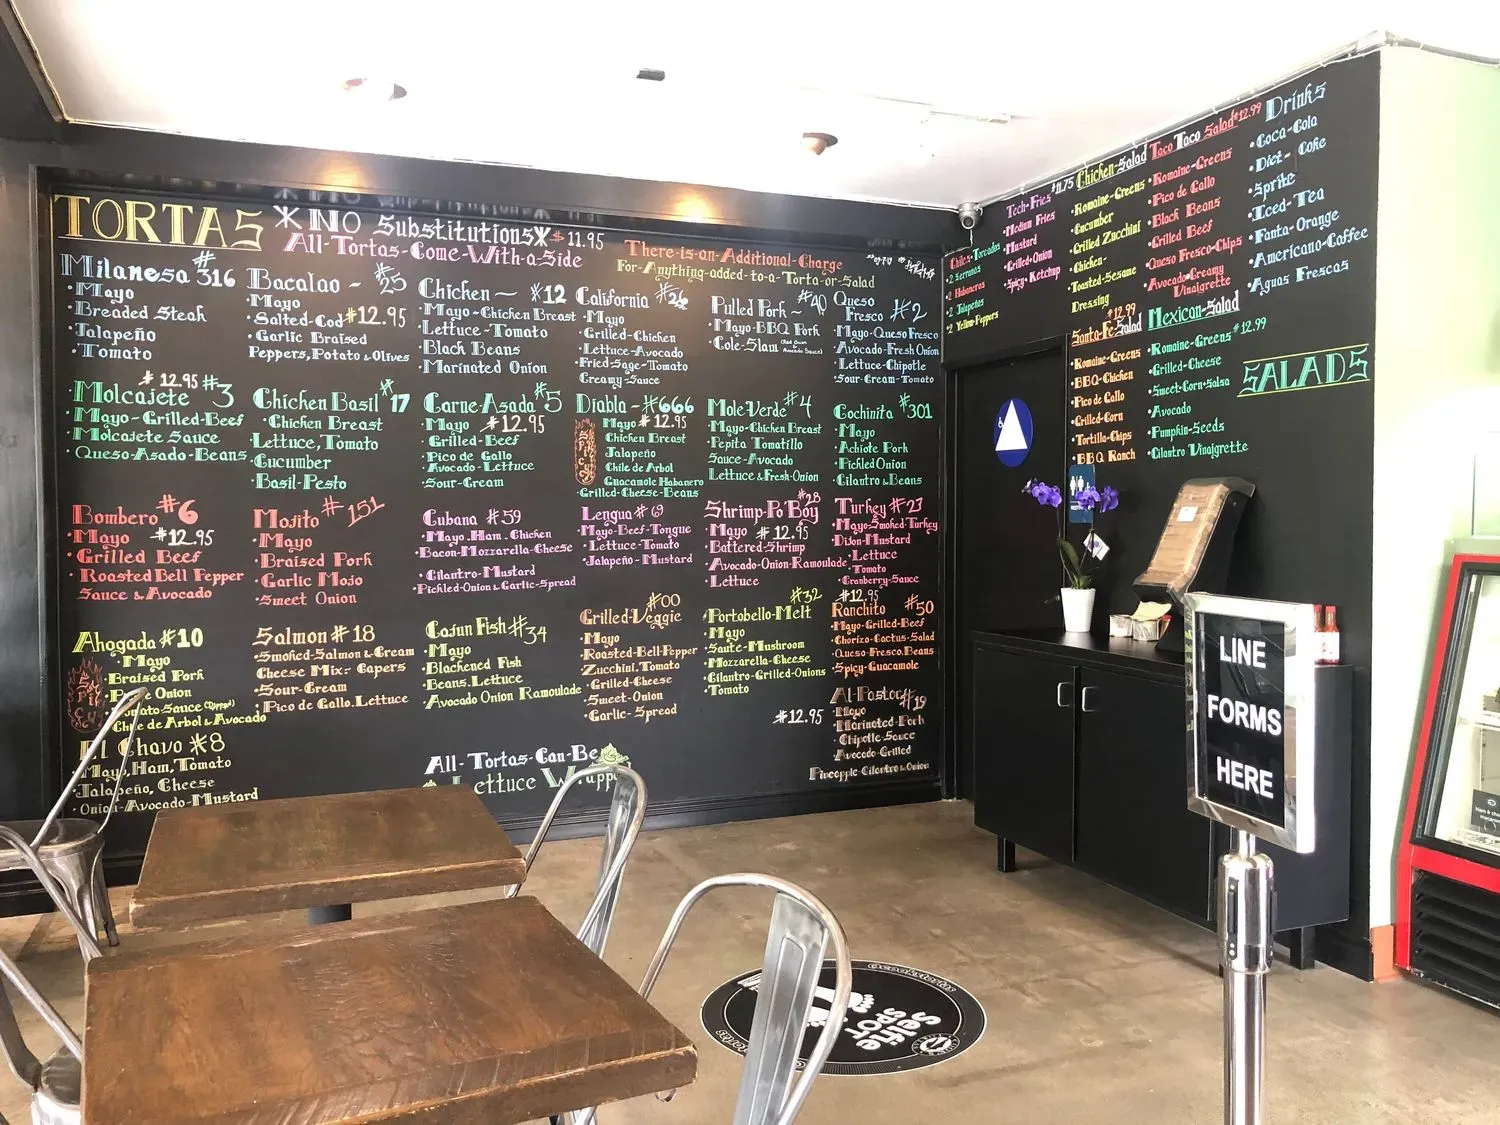 TORTAS
*NO Substitutions* $11.95
All-Tortas-Come-With-a-Side
There-is-an-Additional-Charge
For-Anything-added-to-a-Torta-or-Salad
Milanesa #316
•Mayo
•Breaded Steak
•Jalapeño
•Tomato
Bacalao - #25
•Mayo
•Salted-Cod #12.95
•Garlic Braised
Peppers, Potato & Olives
Chicken - #12
•Mayo-Chicken Breast
•Lettuce-Tomato
•Black Beans
•Marinated Onion
California #26
•Mayo
•Grilled-Chicken
•Lettuce-Avocado
•Fried-Sage-Tomato
Creamy-Sauce
Pulled Pork - #40
•Mayo-BBQ Pork
•Cole-Slaw
Queso
Fresco #2
•Mayo-Queso Fresco
•Avocado-Fresh Onion
•Lettuce-Chipotle
•Sour-Cream-Tomato
$12.95
Molcajete #3
•Mayo-Grilled-Beef
•Molcajete Sauce
•Queso-Asado-Beans
Chicken Basil #17
•Chicken Breast
•Lettuce, Tomato
•Cucumber
•Basil-Pesto
Carne-Asada #5
•Mayo $12.95
•Grilled-Beef
•Pico de Gallo
•Avocado-Lettuce
•Sour-Cream
Diabla - #666
SPICY
Mayo $12.95
Chicken Breast
Jalapeño
Chile de Arbol
Guacamole Habanero
•Grilled-Cheese-Beans
Mole Verde #4
•Mayo-Chicken Breast
•Pepita Tomatillo
Sauce-Avocado
Lettuce & Fresh-Onion
Cochinita #301
•Mayo
•Achiote Pork
•Pickled Onion
•Cilantro & Beans
Bombero #6
•Mayo $12.95
•Grilled Beef
•Roasted Bell Pepper
Sauce & Avocado
Mojito #151
•Mayo
•Braised Pork
•Garlic Mojo
•Sweet Onion
Cubana #59
•Mayo. Ham. Chicken
•Bacon-Mozzarella-Cheese
•Cilantro-Mustard
•Pickled-Onion & Garlic-Spread
Lengua #69
•Mayo-Beef-Tongue
•Lettuce-Tomato
•Jalapeño-Mustard
#28
Shrimp-Po'Boy
•Mayo $12.95
•Battered-Shrimp
•Avocado-Onion-Ramoulade
•Lettuce
Turkey #27
•Mayo-Smoked-Turkey
•Dijon-Mustard
•Lettuce
•Tomato
•Cranberry-Sauce
Ahogada #10
SPICY
•Mayo
•Braised Pork
Onion
Tomato Sauce (Dipped)
Chile de Arbol & Avocado
Salmon #18
•Smoked-Salmon & Cream
Cheese Mix-Capers
•Sour-Cream
•Pico de Gallo. Lettuce
Cajun Fish #34
•Mayo
•Blackened Fish
•Beans. Lettuce
•Avocado Onion Ramoulade
#00
Grilled-Veggie
•Mayo
•Roasted-Bell-Pepper
•Zucchini. Tomato
•Grilled-Cheese
•Sweet-Onion
•Garlic-Spread
#32
Portobello-Melt
•Mayo
•Saute-Mushroom
•Mozzarella-Cheese
•Cilantro-Grilled-Onions
•Tomato
$12.95
Ranchito #50
•Mayo-Grilled-Beef
•Chorizo-Cactus-Salad
•Queso-Fresco. Beans
•Spicy-Guacamole
El Chavo #8
Mayo, Ham, Tomato
•Jalapeño, Cheese
•Onion-Avocado-Mustard
All-Tortas-Can-Be
Lettuce Wrapp
$12.95
Al-Pastor #19
•Mayo
•Marinated-Pork
•Chipotle Sauce
•Avocado-Grilled
Pineapple-Cilantro & Onion
Chiles-Toreados
•2 Serranos
•2 Habaneros
•2 Jalapeños
•2 Yellow-Peppers
Tech-Fries $11.75
•Medium Fries
•Mustard
•Grilled-Onion
•Spicy-Ketchup
Chicken-Salad
•Romaine-Greens
•Cucumber
•Grilled Zucchini
•Chicken-
•Toasted-Sesame
Dressing
Taco Taco Salad $12.99
•Romaine-Greens
•Pico de Gallo
•Black Beans
•Grilled Beef
•Queso Fresco-Chips
•Avocado-Creamy
Vinaigrette
Drinks
•Coca-Cola
•Diet-Coke
•Sprite
•Iced-Tea
•Fanta-Orange
•Americano-Coffee
•Aguas Frescas
$12.99
Santa-Fe-Salad
•Romaine-Greens
•BBQ-Chicken
•Pico de Gallo
•Grilled-Corn
•Tortilla-Chips
•BBQ Ranch
Mexican-Salad
•Romaine-Greens $12.99
•Grilled-Cheese
•Sweet-Corn-Salsa
•Avocado
•Pumpkin-Seeds
•Cilantro Vinaigrette
SALADS
LINE
FORMS
HERE
Selfie
SPOT